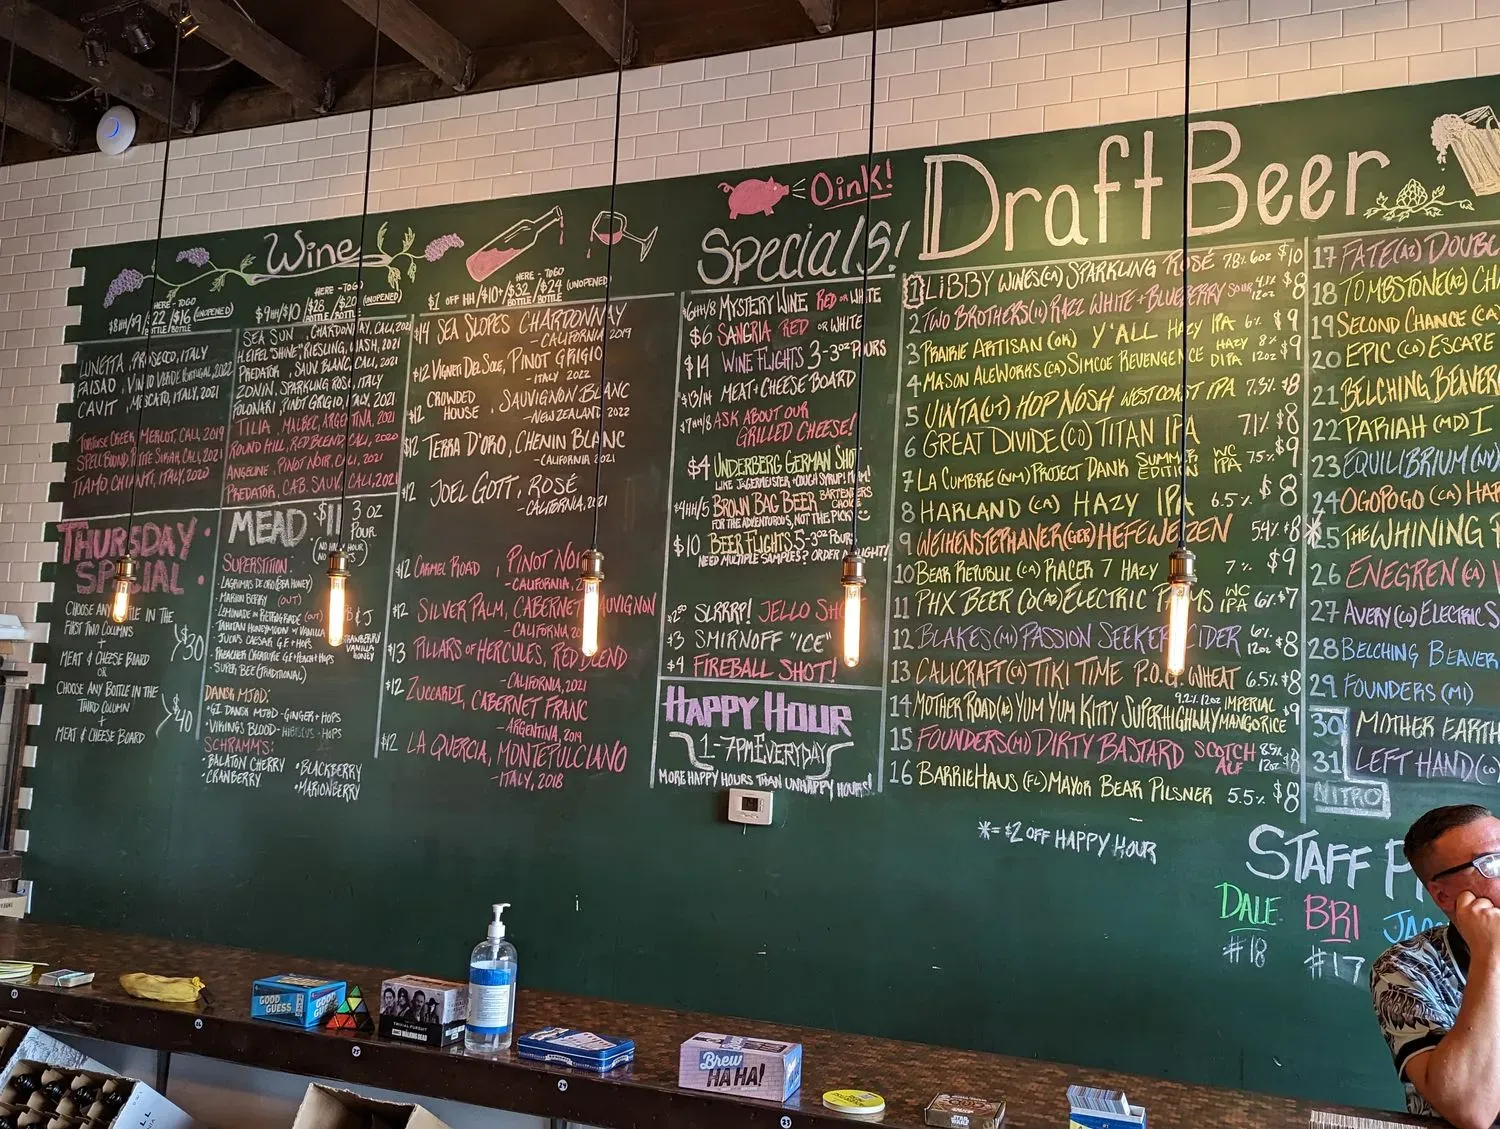 Wine
HERE - TOGO
$8HH/$9/ 22 /$16 (UNOPENED)
BOTTLE BOTTLE
LUNETTA, PROSECCO, ITALY
FAISAO, VINHO VERDE, PORTUGAL, 2022
CAVIT, MOSCATO, ITALY, 2021
TORTOISE CREEK, MERLOT, CALI, 2019
SPELLBOUND, PETITE SIRAH, CALI, 2021
TIAMO, CHIANTI, ITALY, 2020
HERE - TOGO
$9HH/$10/ $28 /$20 (UNOPENED)
BOTTLE BOTTLE
SEA SUN, CHARDONNAY, CALI, 2021
"SHINE" RIESLING, WASH, 2021
PREDATOR, SAUV. BLANC, CALI, 2021
ZONIN, SPARKLING ROSÉ, ITALY
FOLONARI, PINOT GRIGIO, ITALY, 2021
TILIA, MALBEC, ARGENTINA, 2021
ROUND HILL, RED BLEND, CALI, 2020
ANGELINE, PINOT NOIR, CALI, 2021
PREDATOR, CAB. SAUV., CALI, 2021
HERE - TOGO
$1 OFF HH /$10+/$32 /$24 (UNOPENED)
BOTTLE BOTTLE
$14 SEA SLOPES, CHARDONNAY
-CALIFORNIA, 2019
$12 VIGNETI DEL SOLE, PINOT GRIGIO
-ITALY 2022
$12 CROWDED HOUSE, SAUVIGNON BLANC
-NEW ZEALAND 2022
$12 TERRA D'ORO, CHENIN BLANC
-CALIFORNIA 2021
$12 JOEL GOTT, ROSÉ
-CALIFORNIA, 2021
$12 CARMEL ROAD, PINOT NOIR
-CALIFORNIA,
$12 SILVER PALM, CABERNET SAUVIGNON
-CALIFORNIA
$13 PILLARS OF HERCULES, RED BLEND
-CALIFORNIA, 2021
$12 ZUCCARDI, CABERNET FRANC
-ARGENTINA, 2019
$12 LA QUERCIA, MONTEPULCIANO
-ITALY, 2018
THURSDAY
SPECIAL
CHOOSE ANY BOTTLE IN THE
FIRST TWO COLUMNS
+
MEAT & CHEESE BOARD
$30
OR
CHOOSE ANY BOTTLE IN THE
THIRD COLUMN
+
MEAT & CHEESE BOARD
$40
MEAD - $11 3 OZ POUR
(NO HAPPY HOUR)
SUPERSTITION:
•LAGRIMAS DE ORO
•MARION BERRY (OUT)
•TAHITIAN HONEYMOON W/ VANILLA
•SUPER BEE (TRADITIONAL)
DANSK MJØD:
•GI DANSK MJØD - GINGER + HOPS
•VIKING'S BLOOD - HIBISCUS + HOPS
SCHRAMM'S:
•BALATON CHERRY •BLACKBERRY
•CRANBERRY •MARIONBERRY
Oink!
Specials!
$6HH/8 MYSTERY WINE RED OR WHITE
$6 SANGRIA RED OR WHITE
$14 WINE FLIGHTS 3-3OZ POURS
$13/14 MEAT + CHEESE BOARD
$7HH/8 ASK ABOUT OUR
GRILLED CHEESE!
$4 UNDERBERG GERMAN SHOT
LIKE JÄGERMEISTER + COUGH SYRUP! YUM!
$4HH/5 BROWN BAG BEER BARTENDERS CHOICE
FOR THE ADVENTUROUS, NOT THE PICKY
$10 BEER FLIGHTS 5-3OZ POURS
NEED MULTIPLE SAMPLES? ORDER A FLIGHT!
$2.50 SLRRRP! JELLO SHOT
$3 SMIRNOFF "ICE"
$4 FIREBALL SHOT!
HAPPY HOUR
1-7PM EVERYDAY
MORE HAPPY HOURS THAN UNHAPPY HOURS!
Draft Beer
1 LIBBY WINES (CA) SPARKLING ROSÉ 7.8% 6OZ $10
2 TWO BROTHERS (IL) RAZZ WHITE + BLUEBERRY SOUR 4.1% 12OZ $8
3 PRAIRIE ARTISAN (OK) Y'ALL HAZY IPA 6% $9
4 MASON ALEWORKS (CA) SIMCOE REVENGENCE HAZY DIPA 8% 12OZ $9
5 UINTA (UT) HOP NOSH WEST COAST IPA 7.3% $8
6 GREAT DIVIDE (CO) TITAN IPA 7.1% $8
7 LA CUMBRE (NM) PROJECT DANK SUMMER EDITION WC IPA 7.5% $9
8 HARLAND (CA) HAZY IPA 6.5% $8
9 WEIHENSTEPHANER (GER) HEFEWEIZEN 5.4% $8
10 BEAR REPUBLIC (CA) RACER 7 HAZY 7% $9
11 PHX BEER CO (AZ) ELECTRIC PALMS WC IPA 6% $7
12 BLAKES (MI) PASSION SEEKER CIDER 6% 12OZ $8
13 CALICRAFT (CA) TIKI TIME P.O.G. WHEAT 6.5% $8
14 MOTHER ROAD (AZ) YUM YUM KITTY SUPERHIGHWAY 9.2% 12OZ IMPERIAL MANGO RICE $9
15 FOUNDERS (MI) DIRTY BASTARD SCOTCH ALE 8.5% 12OZ $8
16 BARRIEHAUS (FL) MAYOR BEAR PILSNER 5.5% $8
17 FATE (AZ) DOUBL
18 TOMBSTONE (AZ) CH
19 SECOND CHANCE (CA
20 EPIC (CO) ESCAPE
21 BELCHING BEAVER
22 PARIAH (MD) I
23 EQUILIBRIUM (NY)
24 OGOPOGO (CA) HAP
*25 THE WHINING P
26 ENEGREN (CA)
27 AVERY (CO) ELECTRIC S
28 BELCHING BEAVER
29 FOUNDERS (MI)
30 MOTHER EARTH
31 LEFT HAND (CO)
NITRO
*=$2 OFF HAPPY HOUR
STAFF P
DALE BRI
#18 #17
GOOD GUESS
TRIVIAL PURSUIT
WALKING DEAD
Brew HA HA!
STAR WARS